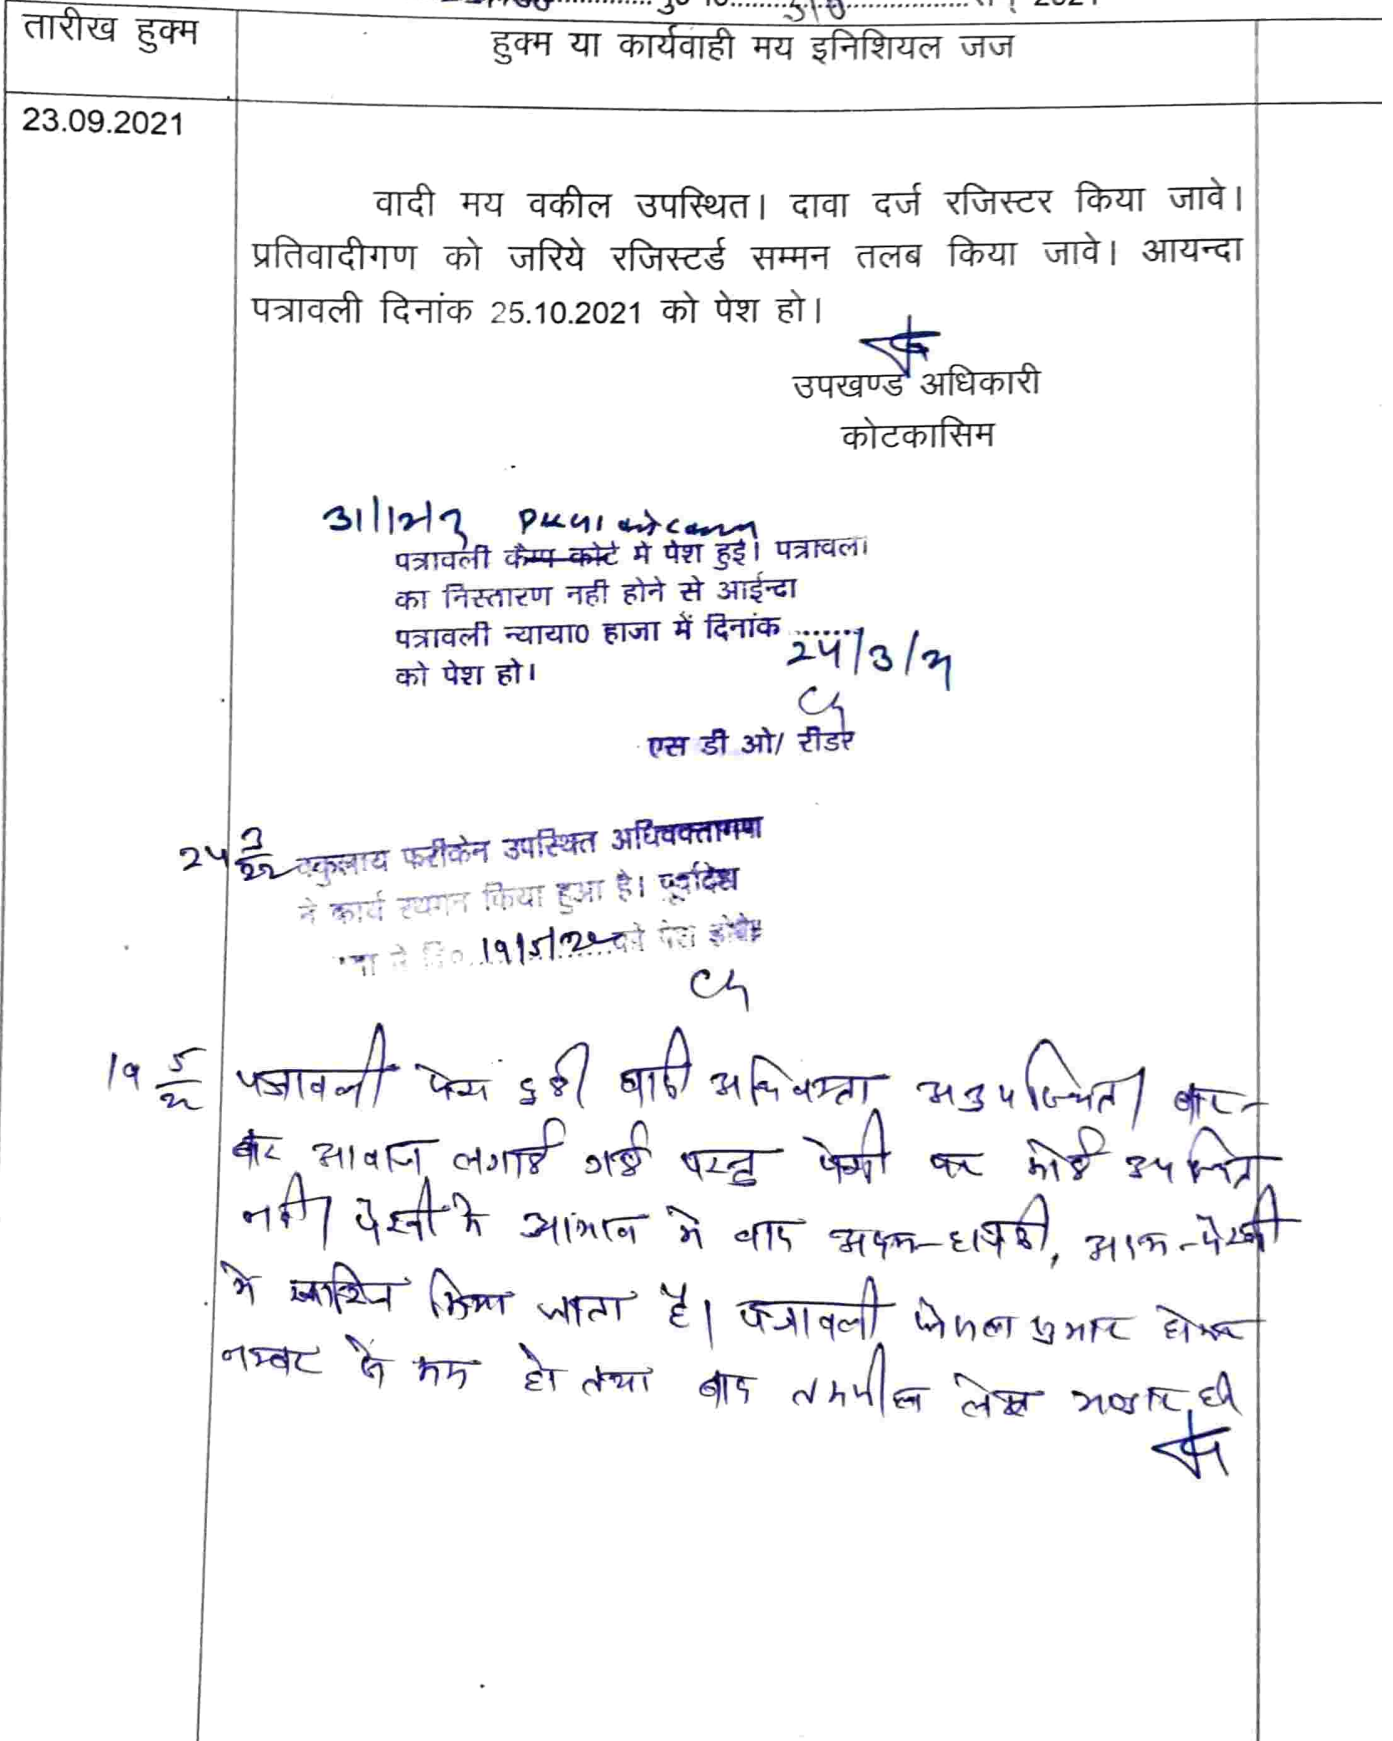 तारीख हुक्म
हुक्म या कार्यवाही मय इनिशियल जज
23.09.2021
वादी मय वकील उपस्थित। दावा दर्ज रजिस्टर किया जावे।
प्रतिवादीगण को जरिये रजिस्टर्ड सम्मन तलब किया जावे। आयन्दा
पत्रावली दिनांक 25.10.2021 को पेश हो।
उपखण्ड अधिकारी
कोटकासिम
पत्रावली कैम्प कोर्ट मे पेश हुई। पत्रावली
का निस्तारण नही होने से आईन्दा
पत्रावली न्याया0 हाजा में दिनांक ......
24/3/22
को पेश हो।
एस डी ओ/ रीडर
24 3/22 वकुलाय फरीकेन उपस्थित अधिवक्तागण
ने कार्य स्थगन किया हुआ है। पूर्वादेश
19/5/22 को पेश होवे
19 5/22 पत्रावली पेश हुई। वादी अधिवक्ता अनुपस्थित। बार-
बार आवाज लगाई गई परन्तु पैरवी पर कोई उपस्थित
नही। पैरवी के अभाव मे वाद अदम-हाजरी, अदम-पैरवी
मे खारिज किया जाता है। पत्रावली फैसल शुमार होकर
नम्बर से कम हो तथा बाद तकमील लेख भण्डार हो